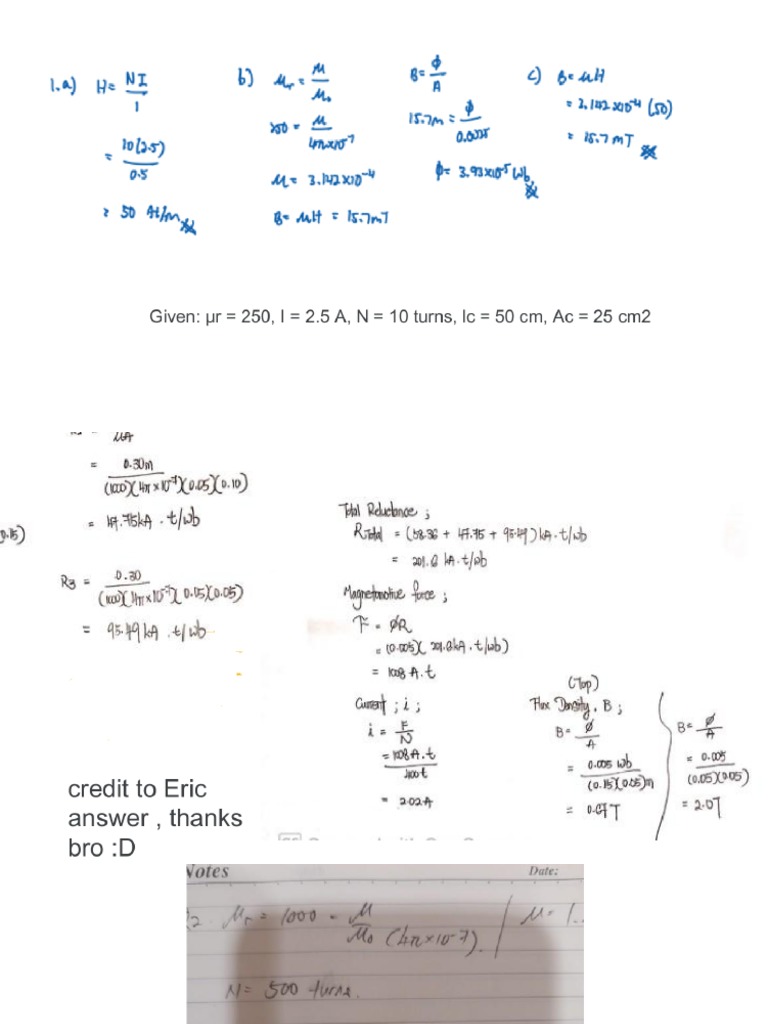 1.a) H = NI / l
= 10(2.5) / 0.5
= 50 At/m
b) μr = μ / μ₀
250 = μ / 4π×10⁻⁷
μ = 3.142×10⁻⁴
B = μH = 15.7mT
B = ϕ / A
15.7m = ϕ / 0.0025
ϕ = 3.93×10⁻⁵ Wb
c) B = μH
= 3.142×10⁻⁴ (50)
= 15.7 mT
Given: μr = 250, I = 2.5 A, N = 10 turns, lc = 50 cm, Ac = 25 cm2
μA
= 0.30m / (1000)(4π×10⁻⁷)(0.05)(0.10)
= 47.75kA.t/wb
0.15)
R3 = 0.30 / (1000)(4π×10⁻⁷)(0.05)(0.05)
= 95.49kA.t/wb
Total Reluctance ;
RTotal = (58.36 + 47.75 + 95.49) kA.t/wb
= 201.6 kA.t/wb
Magnetomotive force ;
F = ϕR
= (0.005)(201.6kA.t/wb)
= 1008 A.t
Current ; i ;
i = F / N
= 1008A.t / 400t
= 2.02A
(Top)
Flux Density, B ;
B = ϕ / A
= 0.005 wb / (0.15)(0.05)m
= 0.67T
B = ϕ / A
= 0.005 / (0.05)(0.05)
= 2.0T
credit to Eric
answer , thanks
bro :D
Notes Date:
2. μr = 1000 = μ / μ₀ (4π×10⁻7). μ = 1.
N = 500 turns.